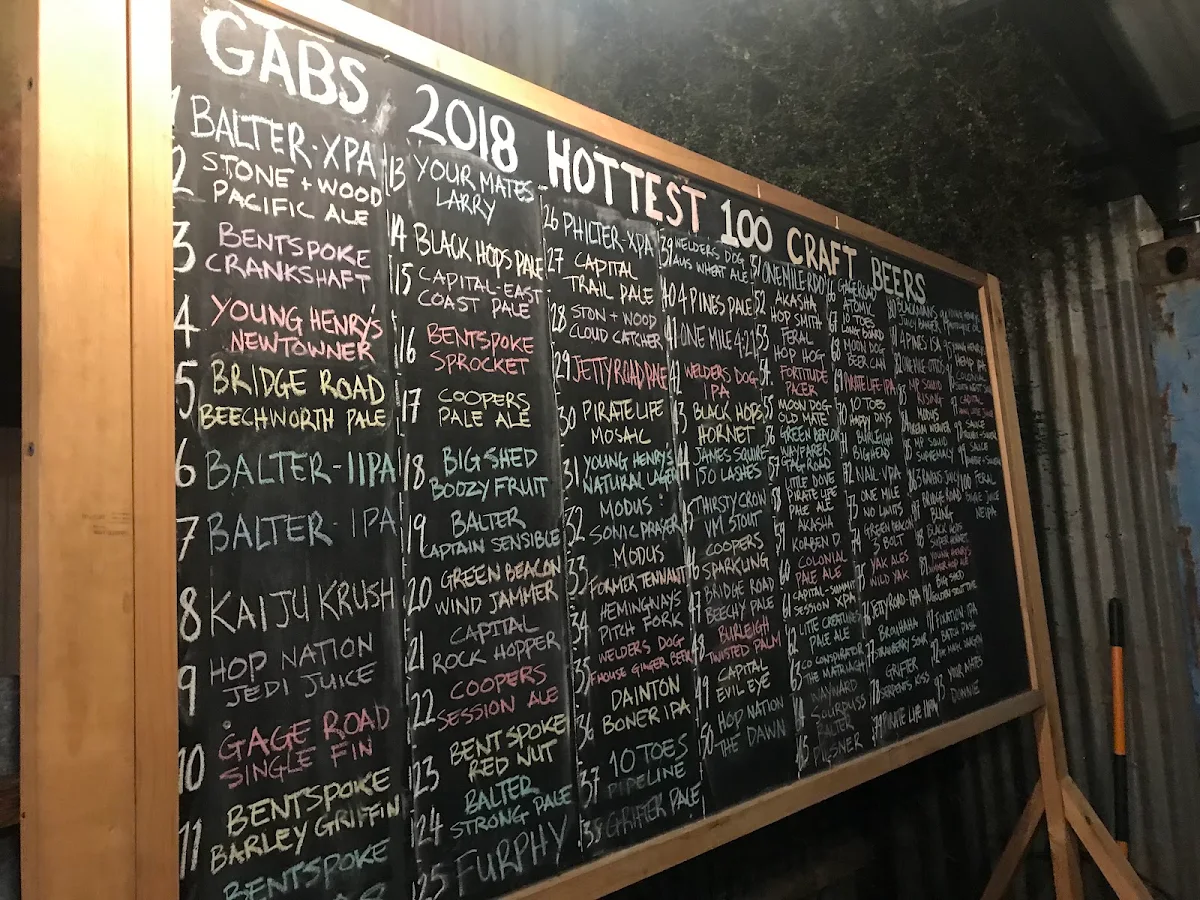 GABS 2018 HOTTEST 100 CRAFT BEERS
1 BALTER-XPA
2 STONE + WOOD
PACIFIC ALE
3 BENTSPOKE
CRANKSHAFT
4 YOUNG HENRY'S
NEWTOWNER
5 BRIDGE ROAD
BEECHWORTH PALE
6 BALTER-IIPA
7 BALTER-IPA
8 KAIJU KRUSH
9 HOP NATION
JEDI JUICE
10 GAGE ROAD
SINGLE FIN
11 BENTSPOKE
BARLEY GRIFFIN
BENTSPOKE
13 YOUR MATES
LARRY
14 BLACK HOPS PALE
15 CAPITAL-EAST
COAST PALE
16 BENTSPOKE
SPROCKET
17 COOPERS
PALE ALE
18 BIG SHED
BOOZY FRUIT
19 BALTER
CAPTAIN SENSIBLE
20 GREEN BEACON
WIND JAMMER
21 CAPITAL
ROCK HOPPER
22 COOPERS
SESSION ALE
23 BENTSPOKE
RED NUT
24 BALTER
STRONG PALE
25 FURPHY
26 PHILTER-XPA
27 CAPITAL
TRAIL PALE
28 STON + WOOD
CLOUD CATCHER
29 JETTY ROAD PALE
30 PIRATE LIFE
MOSAIC
31 YOUNG HENRY'S
NATURAL LAGER
32 MODUS
SONIC PRAYER
33 MODUS
FORMER TENNANT
34 HEMINGWAY'S
PITCH FORK
35 WELDERS DOG
GINGER BEER
36 DAINTON
BONER IPA
37 10 TOES
PIPELINE
38 GRIFTER PALE
39 WELDERS DOG
AUS WHEAT ALE
40 4 PINES PALE
41 ONE MILE 4:21
42 WELDERS DOG
IPA
43 BLACK HOPS
HORNET
44 JAMES SQUIRE
150 LASHES
45 THIRSTY CROW
VM STOUT
46 COOPERS
SPARKLING
47 BRIDGE ROAD
BEECHY PALE
48 BURLEIGH
TWISTED PALM
49 CAPITAL
EVIL EYE
50 HOP NATION
THE DAWN
51 ONE MILE
52 AKASHA
HOP SMITH
53 FERAL
HOP HOG
54 FORTITUDE
PACER
55 MOON DOG
OLD MATE
56 GREEN BEACON
WAYFARER
57 GAGE ROAD
LITTLE DOVE
58 PIRATE LIFE
PALE ALE
59 AKASHA
KORBEN D
60 COLONIAL
PALE ALE
61 CAPITAL-SUMMIT
SESSION XPA
62 LITTLE CREATURES
PALE ALE
63 CO CONSPIRATORS
THE MATRIARCH
64 WAYWARD
SOURPUSS
65 BALTER
PILSNER
66 GAGE ROAD
ATOMIC
67 10 TOES
LONG BOARD
68 MOON DOG
BEER CAN
69 PIRATE LIFE-IPA
70 10 TOES
HAPPY DAYS
71 BURLEIGH
BIGHEAD
72 NAIL VPA
73 ONE MILE
NO LIMITS
74 GREEN BEACON
3 BOLT
75 YAK ALES
WILD YAK
76 JETTY ROAD-IPA
77 BROUHAHA
STRAWBERRY SOUR
78 GRIFTER
SERPENTS KISS
79 PIRATE LIFE IIPA
80 BLACKMANS
JUICY BANGER
4 PINES ISA
MP SQUID
RISING
84 MODUS
DREAM WEAVER
85 MP SQUID
SUPREMACY
BRIDGE ROAD
BLING
BLACK HOPS
SUPER HORNET
YOUNG HENRY'S
BIG SHED
GOLDEN STOUT TIME
FIXATION IPA
BATCH
93 YOUR MATES
DONNIE
SAUCE
SAUCE
100 FERAL
BIGGIE JUICE
NEIPA